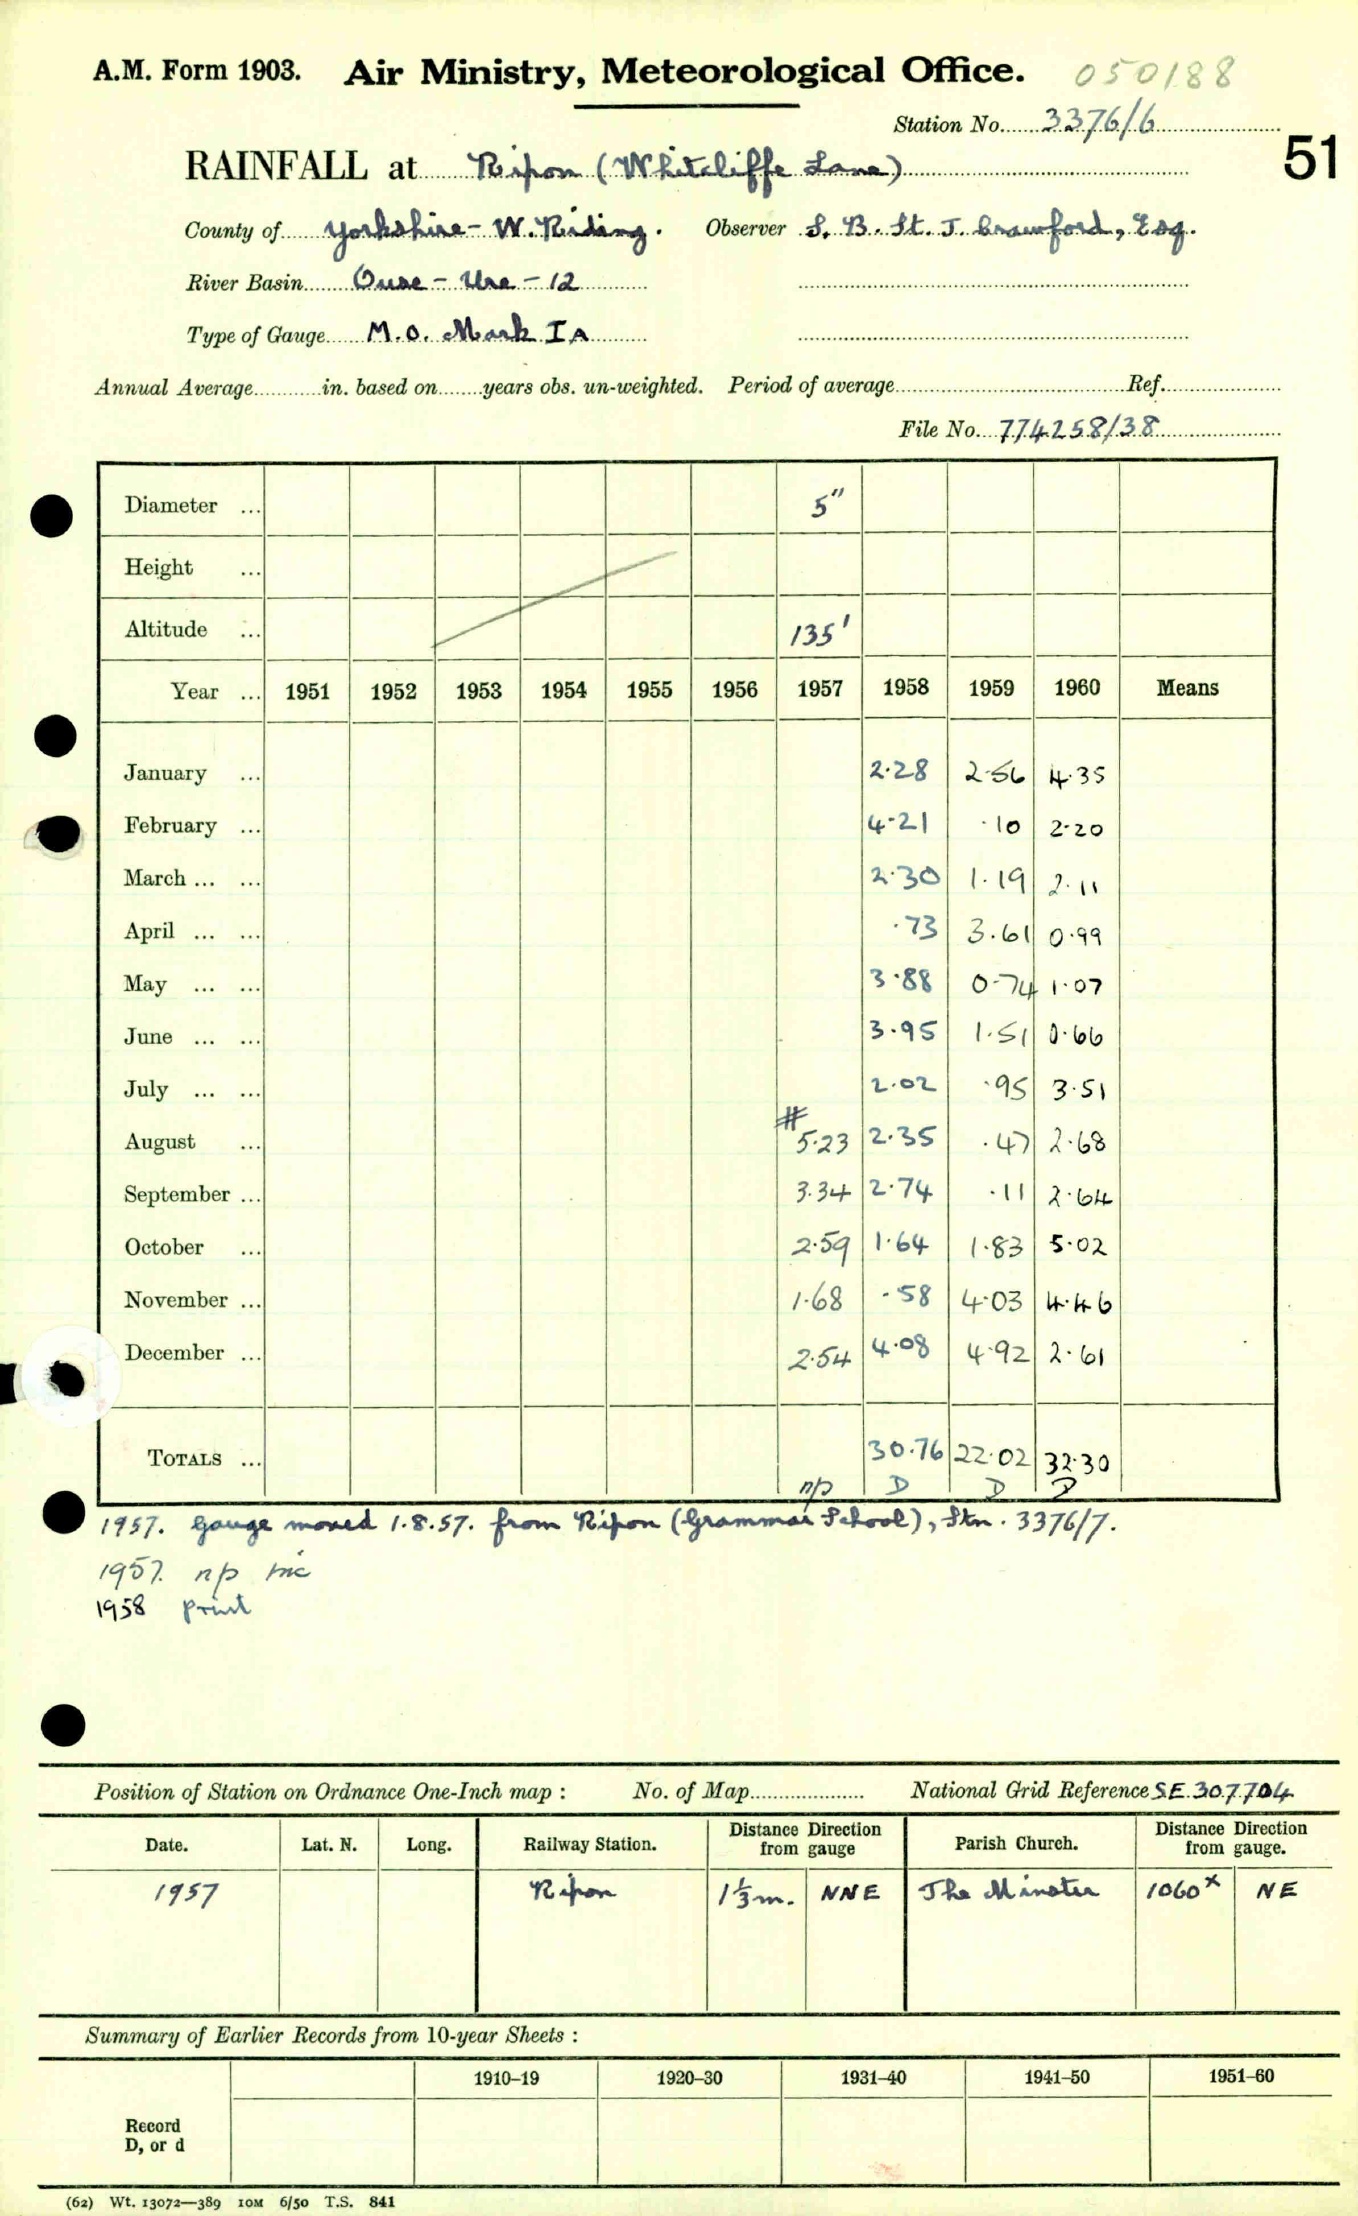 A.M. Form 1903. Air Ministry, Meteorological Office. 050188
Station No. 3376/6
51
RAINFALL at Ripon (Whitcliffe Lane)
County of Yorkshire - W. Riding. Observer S. B. St. J. Crawford, Esq.
River Basin Ouse - Ure - 12
Type of Gauge M.O. Mark IA
Annual Average in. based on years obs. un-weighted. Period of average Ref.
File No. 774258/38
Diameter ... 5"
Height ...
Altitude ... 135'
Year ... 1951 1952 1953 1954 1955 1956 1957 1958 1959 1960 Means
January ... 2.28 2.56 4.35
February ... 4.21 .10 2.20
March ... ... 2.30 1.19 2.11
April ... ... .73 3.61 0.99
May ... ... 3.88 0.74 1.07
June ... ... 3.95 1.51 0.66
July ... ... 2.02 .95 3.51
August ... # 5.23 2.35 .47 2.68
September ... 3.34 2.74 .11 2.64
October ... 2.59 1.64 1.83 5.02
November ... 1.68 .58 4.03 4.46
December ... 2.54 4.08 4.92 2.61
TOTALS ... 30.76 22.02 32.30
np D D D
1957. Gauge moved 1.8.57. from Ripon (Grammar School), Stn. 3376/7.
1957. np inc
1958 print
Position of Station on Ordnance One-Inch map : No. of Map National Grid Reference SE 307704
Date. Lat. N. Long. Railway Station. Distance Direction from gauge Parish Church. Distance Direction from gauge.
1957 Ripon 1⅓m. NNE The Minster 1060x NE
Summary of Earlier Records from 10-year Sheets :
1910–19 1920–30 1931–40 1941–50 1951–60
Record
D, or d
(62) Wt. 13072—389 10M 6/50 T.S. 841